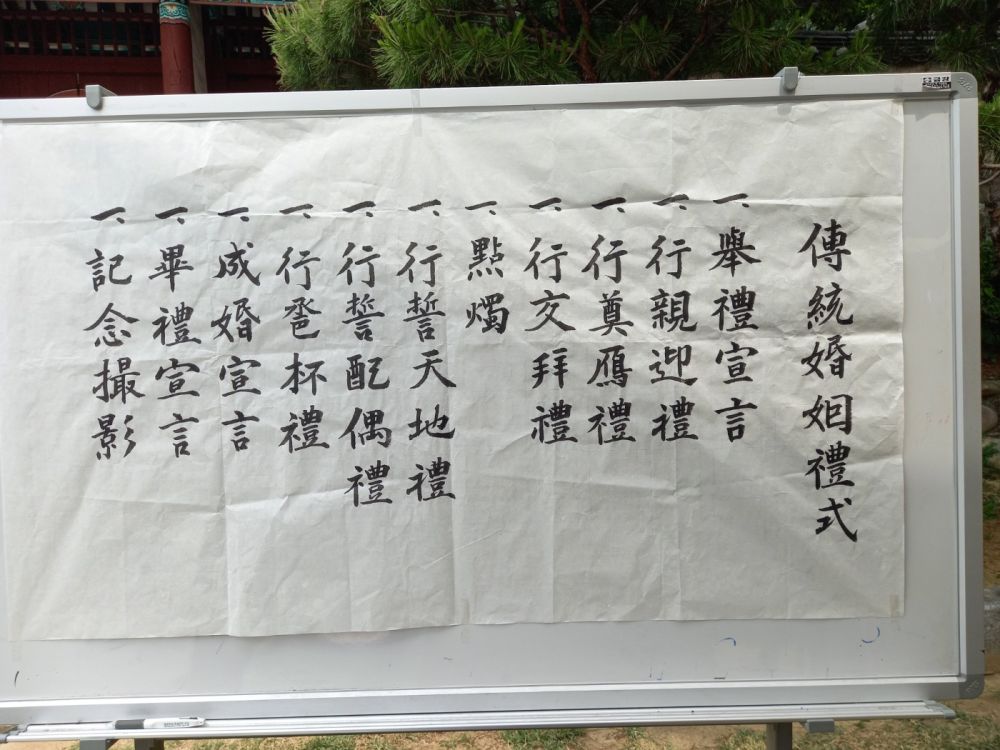 傳統婚姻禮式
一. 舉禮宣言
一. 行親迎禮
一. 行奠鴈禮
一. 行交拜禮
一. 點燭
一. 行誓天地禮
一. 行誓配偶禮
一. 行卺杯禮
一. 成婚宣言
一. 畢禮宣言
一. 記念撮影